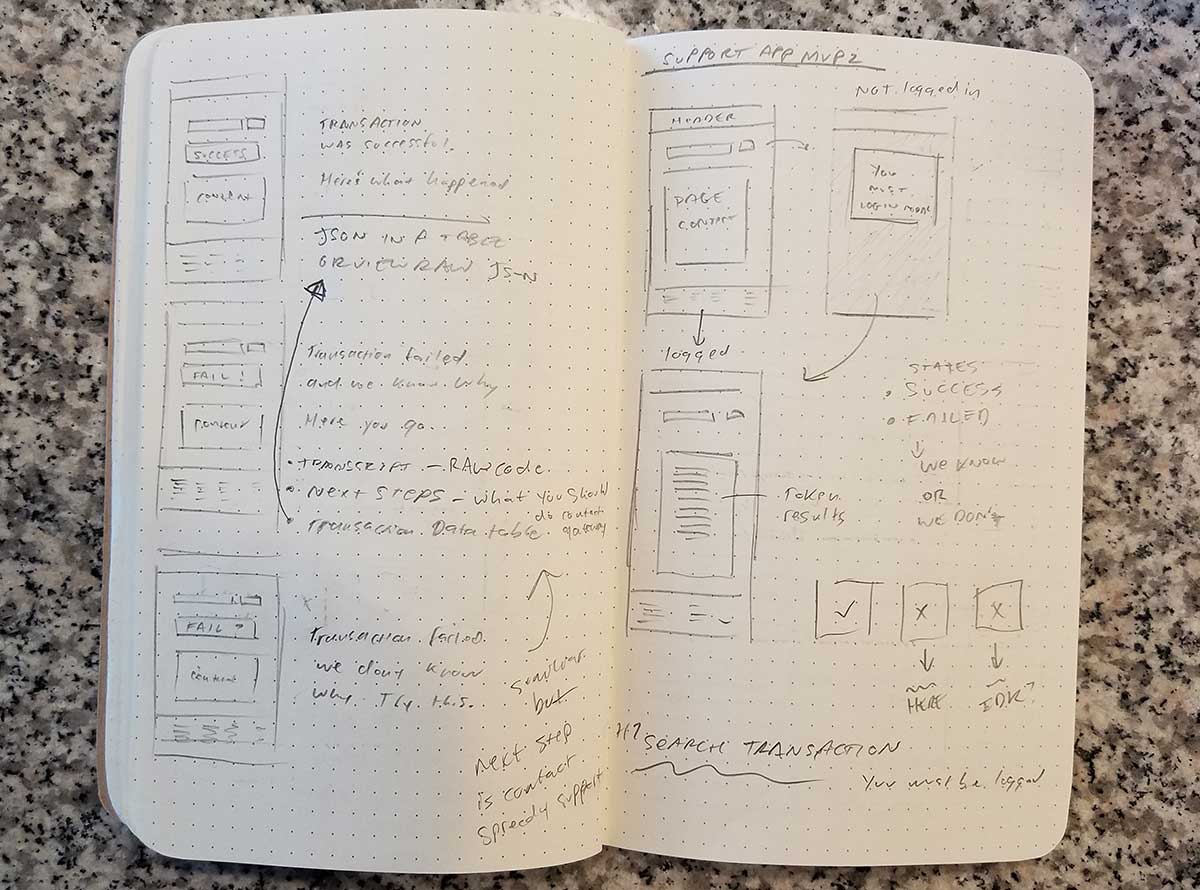 TRANSACTION
WAS SUCCESSFUL.
Here's what happened
SUCCESS
CONTENT
JSON IN A TABLE
OR VIEW RAW JSON
Transaction failed
and we know why
Here you go..
FAIL!
• TRANSCRIPT - RAW code
• NEXT STEPS - what you should
do contact
gateway
• Transaction Data table
FAIL ?
Content
Transaction failed.
we don't know
why. Try this.
similar
but
next step
is contact
Spreedly support
SUPPORT APP MVP2
NOT logged in
HEADER
PAGE
CONTENT
YOU
MUST
LOGIN
logged
STATES
• SUCCESS
• FAILED
WE KNOW
OR
WE DON'T
Token
results
HERE
IDK?
H1
SEARCH TRANSACTION
You must be logged